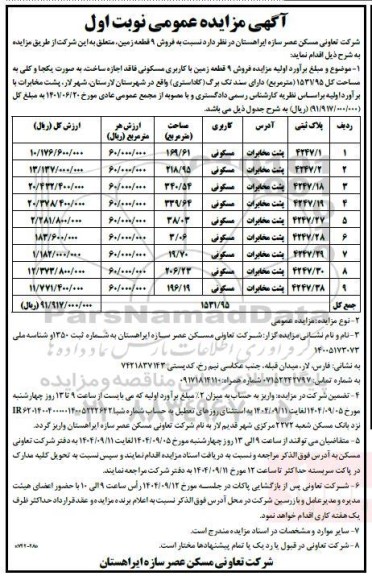 آگهی مزایده عمومی نوبت اول
شرکت تعاونی مسکن عصر سازه ایراهستان در نظر دارد نسبت به فروش ۹ قطعه زمین، متعلق به این شرکت از طریق مزایده
به شرح ذیل اقدام نماید:
۱- موضوع و مبلغ برآورد اولیه مزایده: فروش ۹ قطعه زمین با کاربری مسکونی فاقد اجازه ساخت، به صورت یکجا و کلی به
مساحت کل ۱۵۳۱/۹۵ (مترمربع) دارای سند تک برگ (کاداستری) واقع در شهرستان لارستان، شهر لار، پشت مخابرات با
برآورد اولیه براساس نظریه کارشناس رسمی دادگستری و با مصوبه از مجمع عمومی عادی مورخ ۱۴۰۱/۰۶/۲۰ به مبلغ کل
(۹۱/۹۱۷/۰۰۰/۰۰۰) (ریال) به شرح جدول ذیل می باشد.
ردیف پلاک ثبتی آدرس کاربری مساحت (مترمربع) ارزش هر مترمربع (ریال) ارزش کل (ریال)
۱ ۴۲۴۷/۱ پشت مخابرات مسکونی ۱۶۹/۶۱ ۶۰/۰۰۰/۰۰۰ ۱۰/۱۷۶/۶۰۰/۰۰۰
۲ ۴۲۴۷/۲ پشت مخابرات مسکونی ۲۱۸/۹۵ ۶۰/۰۰۰/۰۰۰ ۱۳/۱۳۷/۰۰۰/۰۰۰
۳ ۴۲۴۷/۱۸ پشت مخابرات مسکونی ۳۴۰/۵۴ ۶۰/۰۰۰/۰۰۰ ۲۰/۴۳۲/۴۰۰/۰۰۰
۴ ۴۲۴۷/۱۹ پشت مخابرات مسکونی ۳۳۹/۶۴ ۶۰/۰۰۰/۰۰۰ ۲۰/۳۷۸/۴۰۰/۰۰۰
۵ ۴۲۴۷/۲۷ پشت مخابرات مسکونی ۳۸/۰۳ ۶۰/۰۰۰/۰۰۰ ۲/۲۸۱/۸۰۰/۰۰۰
۶ ۴۲۴۷/۲۸ پشت مخابرات مسکونی ۳/۰۶ ۶۰/۰۰۰/۰۰۰ ۱۸۳/۶۰۰/۰۰۰
۷ ۴۲۴۷/۲۹ پشت مخابرات مسکونی ۱۹/۷۰ ۶۰/۰۰۰/۰۰۰ ۱/۱۸۲/۰۰۰/۰۰۰
۸ ۴۲۴۷/۳۰ پشت مخابرات مسکونی ۲۰۶/۲۳ ۶۰/۰۰۰/۰۰۰ ۱۲/۳۷۳/۸۰۰/۰۰۰
۹ ۴۲۴۷/۳۸ پشت مخابرات مسکونی ۱۹۶/۱۹ ۶۰/۰۰۰/۰۰۰ ۱۱/۷۷۱/۴۰۰/۰۰۰
جمع کل ۱۵۳۱/۹۵ ۹۱/۹۱۷/۰۰۰/۰۰۰ (ریال)
۲- نوع مزایده: مزایده عمومی
۳- نام و نام نشانی مزایده گزار: شرکت تعاونی مسکن عصر سازه ایراهستان به شماره ثبت ۱۳۵۰ و شناسه ملی
به نشانی: فارس، لار، میدان قبله، جنب عکاسی نیم رخ، کدپستی: ۷۴۳۱۸۳۷۱۴۳
به شماره تماس: ۰۷۱۵۲۲۴۷۹۷۰ شماره همراه: ۰۹۱۷۱۸۱۴۱۱۰
۴- تضمین شرکت در مزایده: واریز به حساب به میزان ۲٪ مبلغ برآورد اولیه که می بایست از ساعت ۹ تا ۱۳ روز چهارشنبه
مورخ ۱۴۰۴/۰۹/۰۵ لغایت ۱۴۰۴/۰۹/۱۱ به استثنای روزهای تعطیل به حساب شماره شبا
نزد بانک مسکن شعبه ۲۲۷۲ مرکزی شهر قدیم لار به نام شرکت تعاونی مسکن عصر سازه ایراهستان واریز گردد.
۵- متقاضیان می توانند از ساعت ۹ الی ۱۳ روز چهارشنبه مورخ ۱۴۰۴/۰۹/۰۵ لغایت ۱۴۰۴/۰۹/۱۱ به دفتر شرکت تعاونی
مسکن به آدرس فوق الذکر مراجعه و نسبت به دریافت اسناد مزایده اقدام نمایند و سپس نسبت به تحویل کلیه مدارک
در پاکت سربسته حداکثر تا ساعت ۱۲ مورخ ۱۴۰۴/۰۹/۱۱ به دفتر شرکت مراجعه نمایند.
۶- شرکت تعاونی پس از بازگشایی پاکات در جلسه مورخ ۱۴۰۴/۰۹/۱۲ رأس ساعت ۹ الی ۱۰ با حضور اعضای هیئت
مدیره و مدیرعامل و بازرسین شرکت در محل آدرس فوق الذکر نسبت به اعلام برنده مزایده و عقد قرارداد حداکثر ظرف
یک هفته کاری اقدام خواهد نمود.
۷- سایر موارد و مشخصات در اسناد مزایده مندرج است.
۸- شرکت تعاونی در قبول یا رد یک یا تمام پیشنهادها مختار است.
شرکت تعاونی مسکن عصر سازه ایراهستان